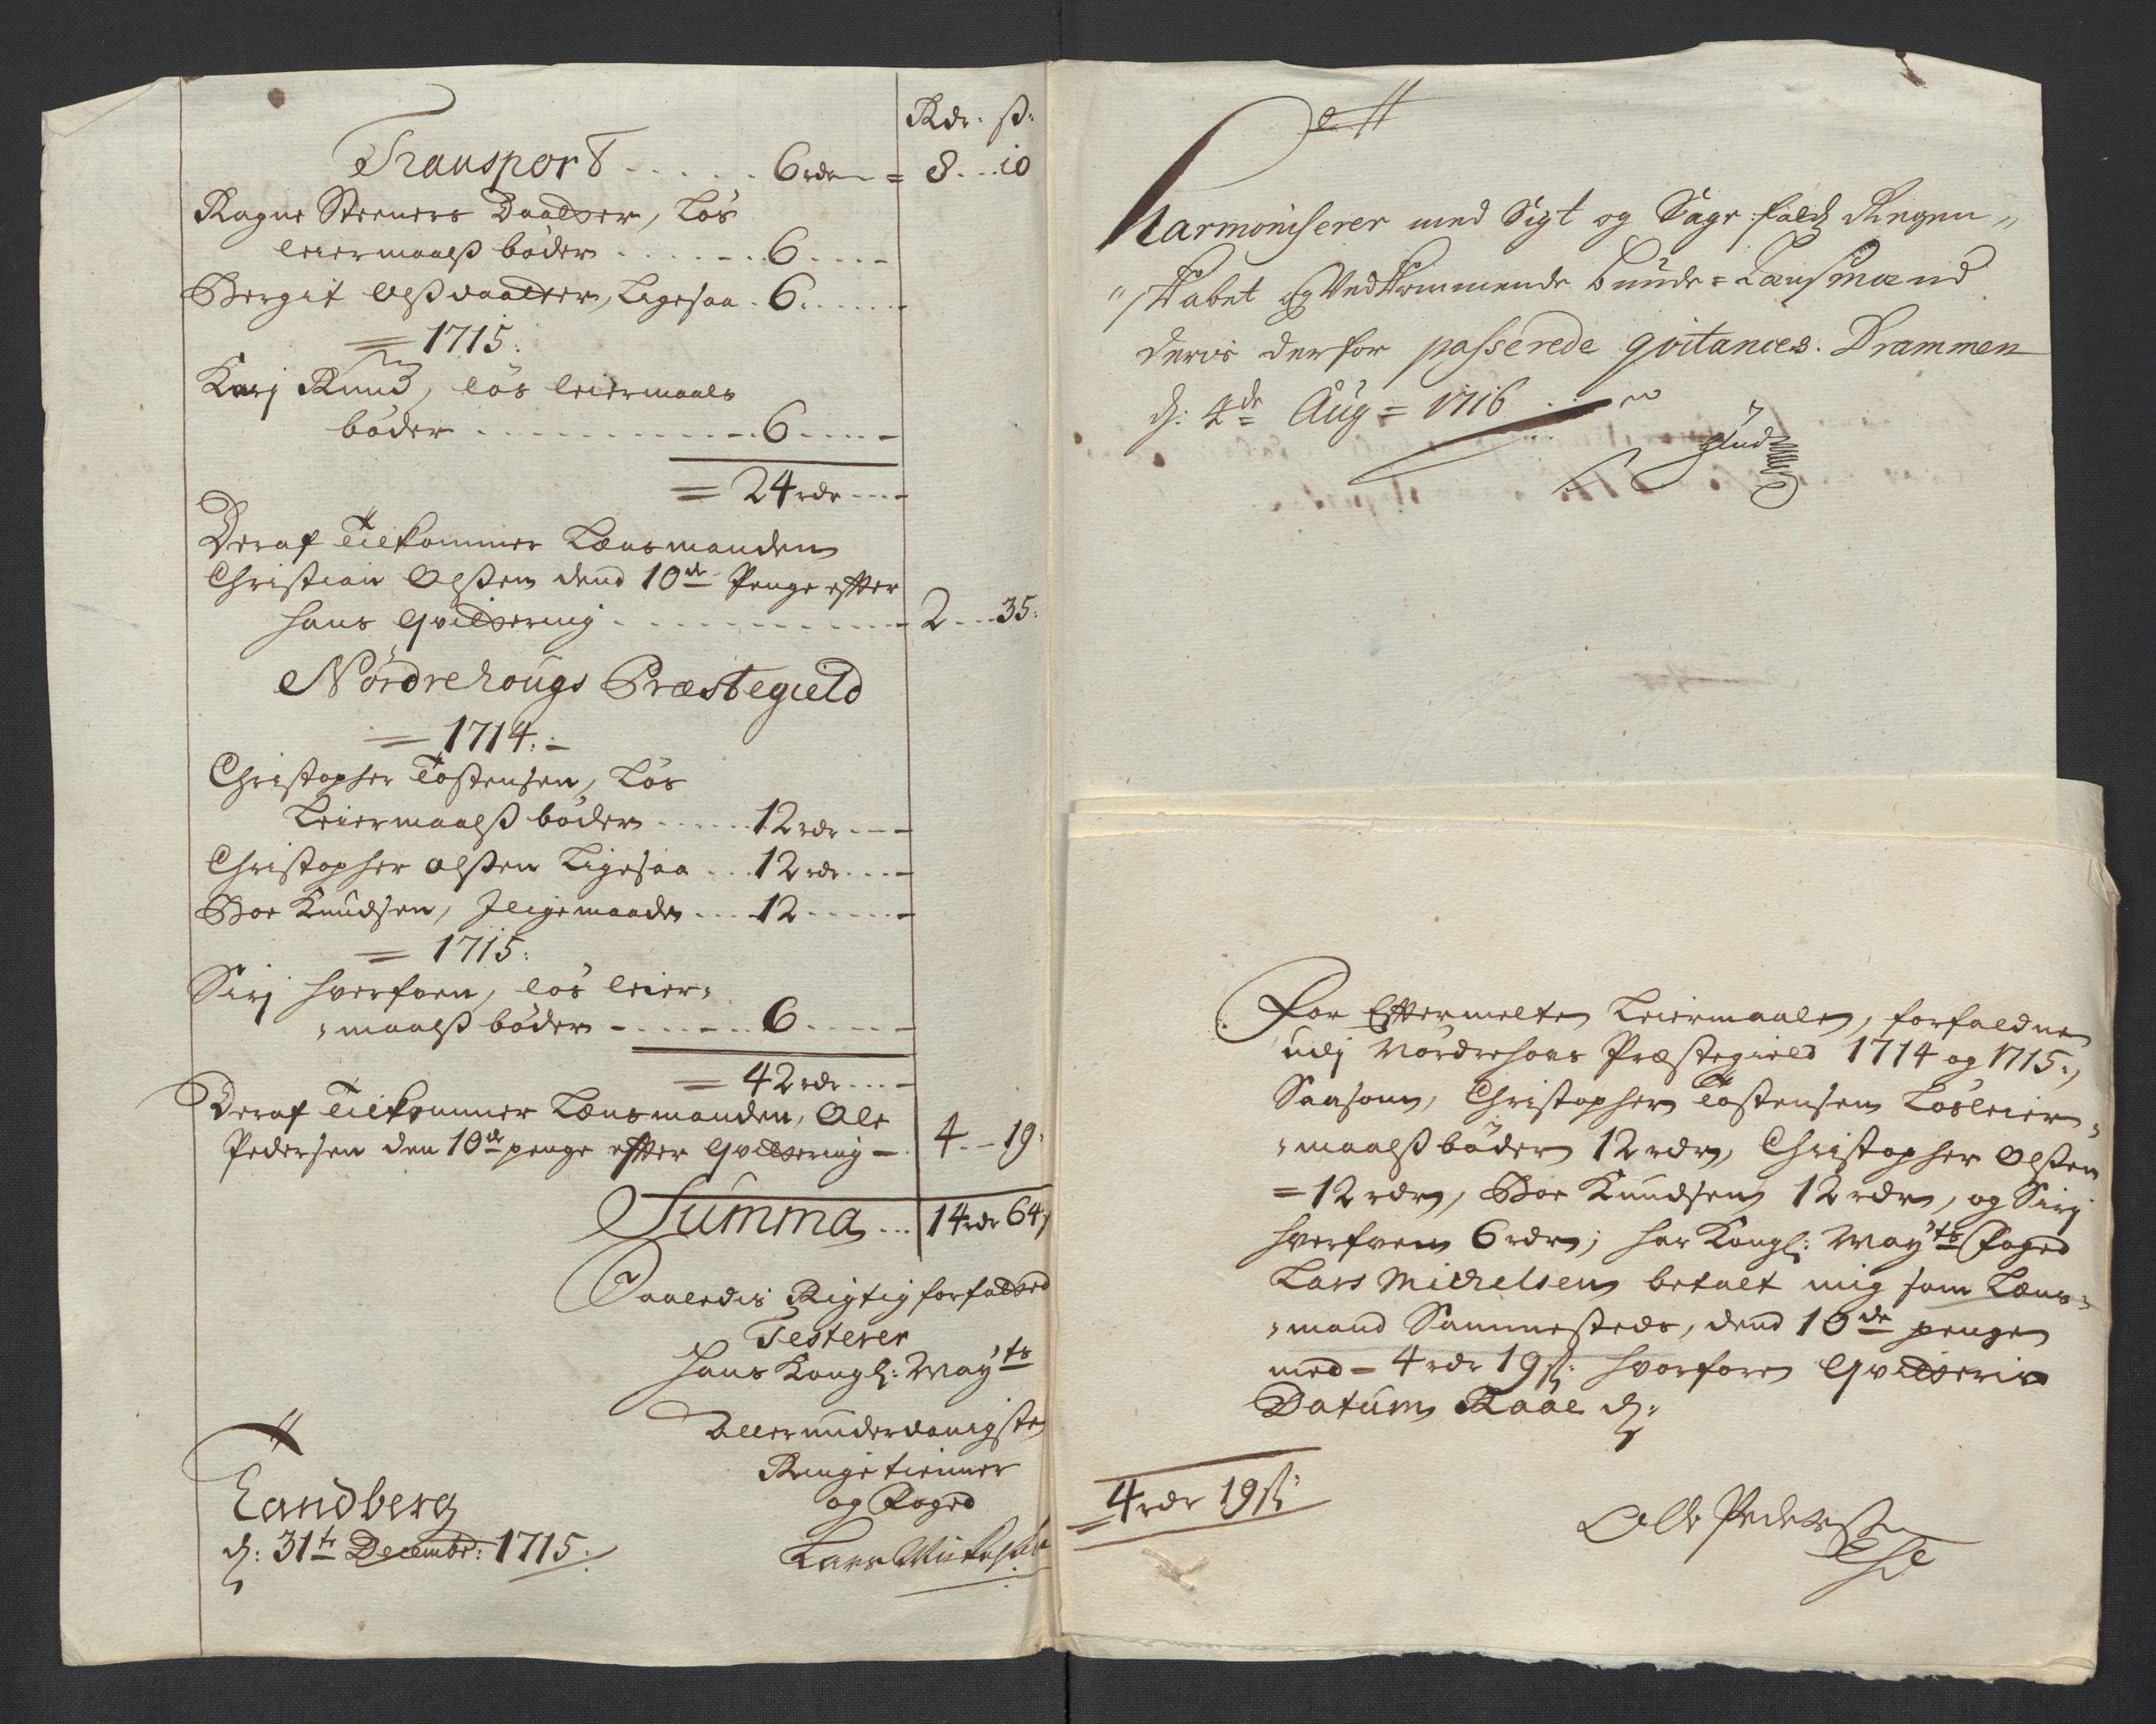 Rdr: ß:
Transport . . . . . . 6 rdr = 8 . . . 10
Ragne Steeners Daatter, Løs
leiermaalß bøder . . . . . . 6 . . . .
Bergit Olßdaatter, Ligesaa . 6 . . . . .
= 1715:
Karj Rund, løs leiermaals
bøder . . . . . . . . . . . 6 . . . . .
= 24 rdr . . . .
Deraf Tilkommer Lænsmanden
Christian Olßen dend 10de Penge effter
hans Qvittering . . . . . . . . . . . . 2 . . . 35:
Nørdrehougs Præstegield
= 1714:
Christopher Tostensen, Løs
Leiermaalß bøder . . . . . 12 rdr . . .
Christopher Olßen Ligesaa . . . 12 rdr . . . .
Boe Knudsen, J lige maade . . . . 12 . . . . .
= 1715:
Sirj Hverfven, løs leier-
-maalß bøder - . . . . . . 6 . . . . .
= 42 rdr . . . .
Deraf Tilkommer Lænsmanden, Ole
Pedersen den 10de penge effter Qvittering - . 4 - 19:
Summa . . . 14 rdr 64
Saaledis Rigtig forfatted
Testerer
Hans Kongl: Mayts
Allerunderdanigste
Ringe tienner
og Foged
Lars Michelsen
Landberg
d: 31te Decembr: 1715:
Harmoniserer med Sigt og Sage falds Regen
skabet og Vedkommende bunde= Lænsmænd
deris derfor passerede qvitances. Drammen
d: 4de Aug= 1716
For Efftermelte Leiermaale, forfaldne
udj Nordrehovs Præstegield 1714 og 1715.,
Saasom, Christopher Tostensen Løsleier-
-maalß bøder 12 rdr, Christopher Olßen
= 12 rdr, Boe Knudsen 12 rdr, og Sirj
Hverfven 6 rdr; har Kongl: Mayts Foged
Lars Michelsen betalt mig som Læns-
-mand Sammesteds, dend 10de penge
med - 4 rdr 19 ß: hvorfore Qvitteris
Datum Raae d:
= 4 rdr 19 ß:
Olle Pedersen